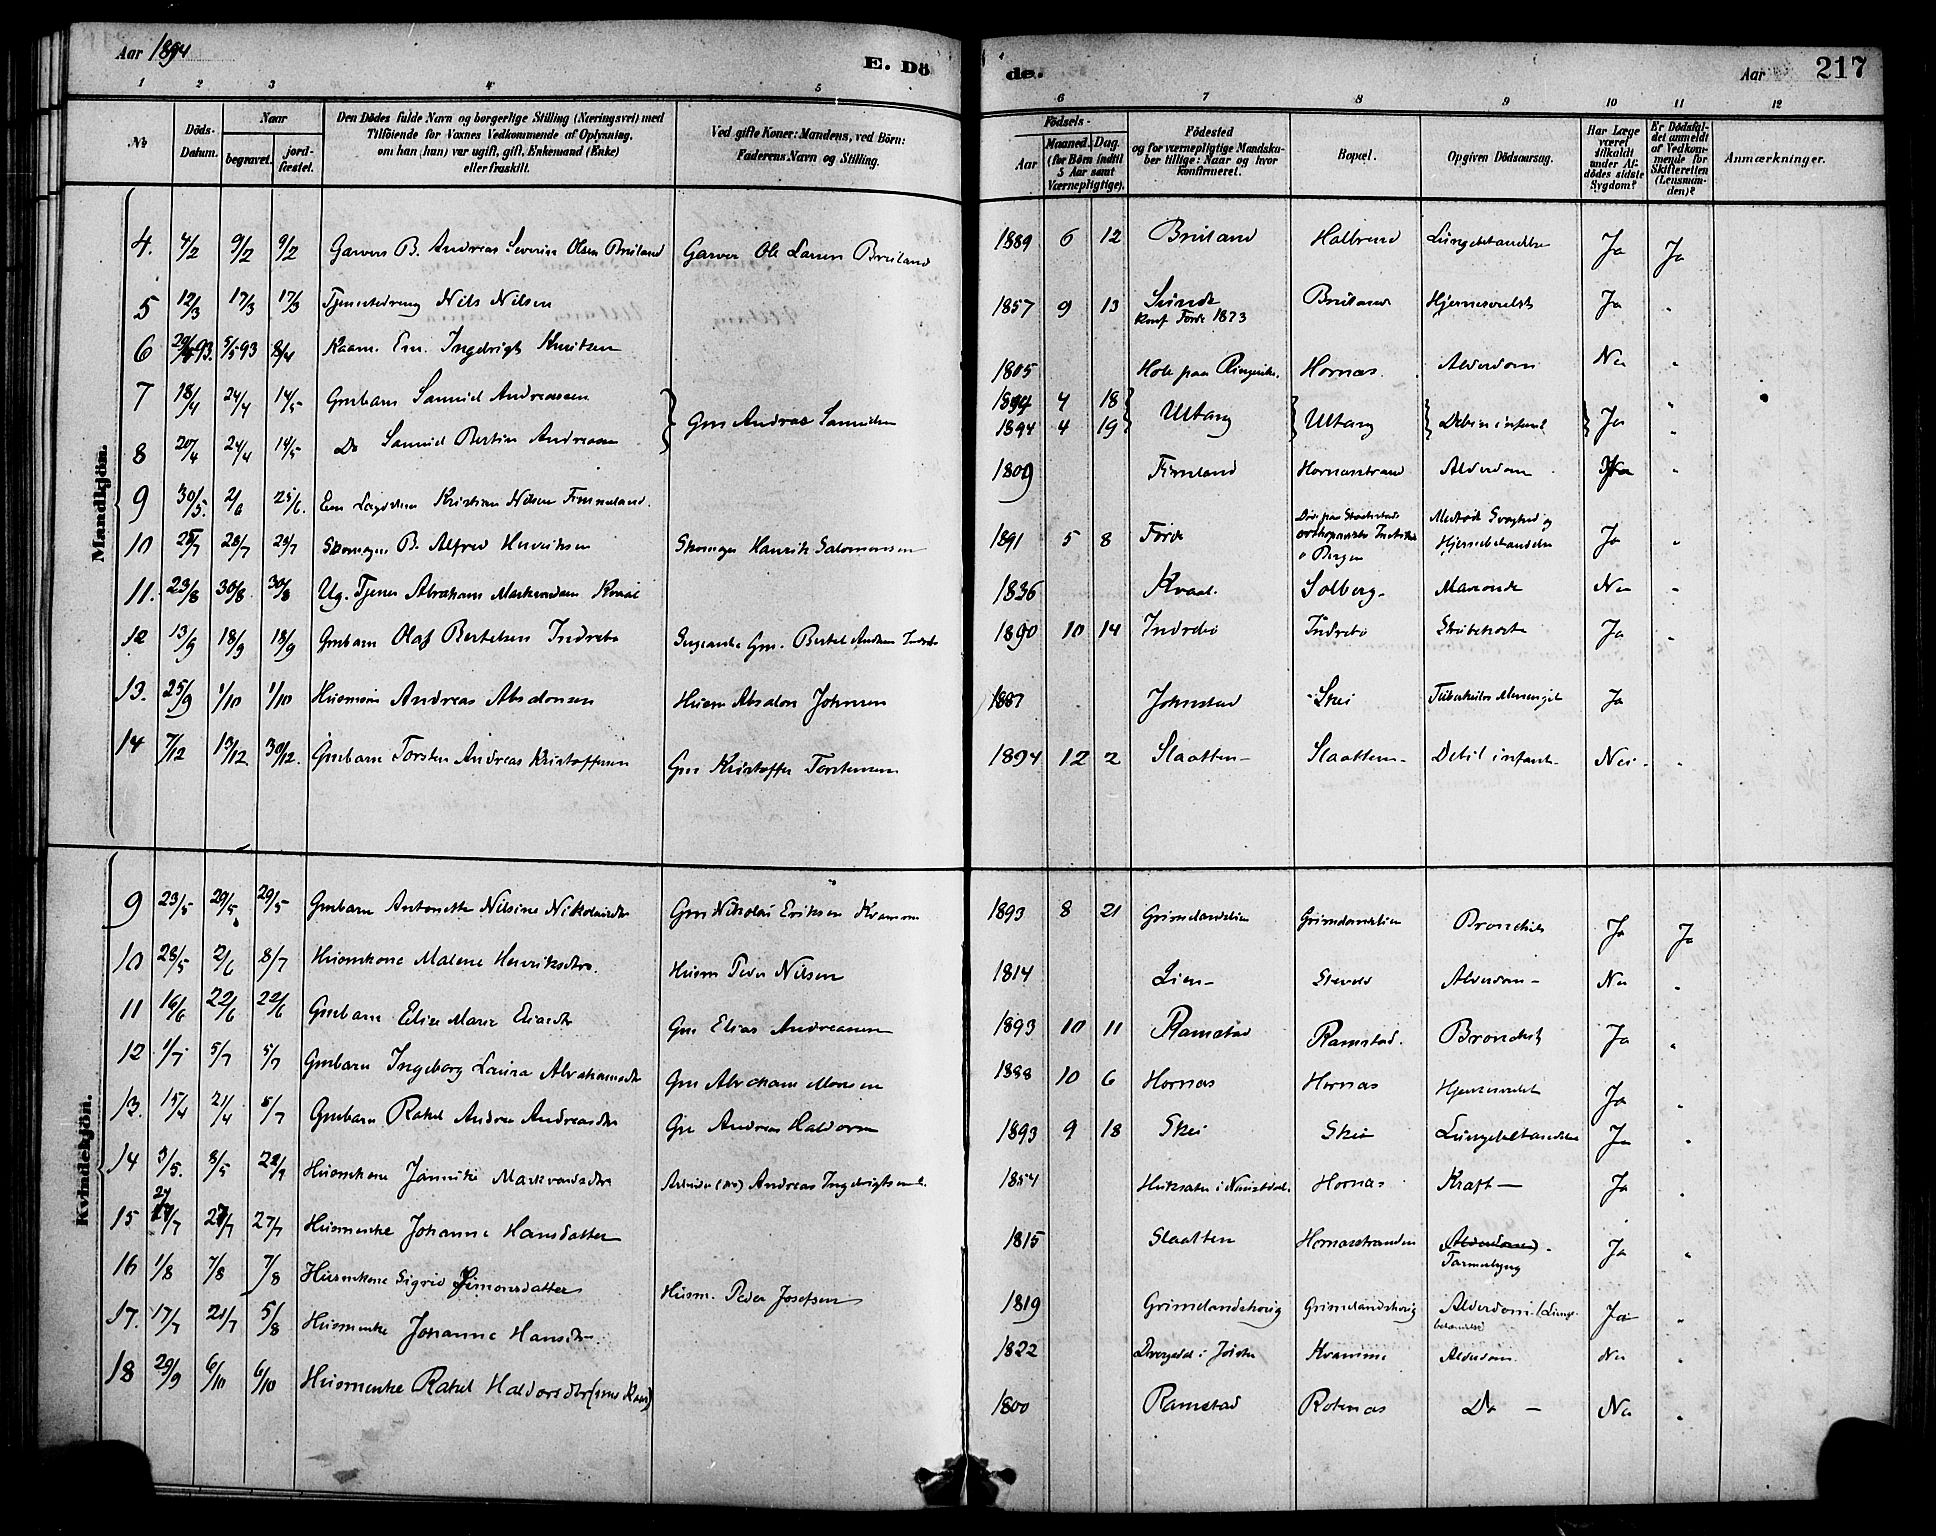 Aar 1894
E. Dö
de.
Aar 217
1 2 3 4 5 6 7 8 9 10 11 12
No
Döds-Datum.
Naar
begravet.
jord-fæstet.
Den Dödes fulde Navn og borgerlige Stilling (Næringsvei) med
Tilföiende for Voxnes Vedkommende af Oplysning,
om han (hun) var ugift, gift, Enkemand (Enke)
eller fraskilt.
Ved gifte Koner: Mandens, ved Börn:
Faderens Navn og Stilling.
Födsels-
Aar
Maaned. Dag.
(for Börn indtil
5 Aar samt
Værnepligtige).
Födested
og for værnepligtige Mandska-
ber tillige: Naar og hvor
konfirmeret.
Bopæl.
Opgiven Dödsaarsag.
Har Læge
været
tilkaldt
under Af-
dödes sidste
Sygdom?
Er Dödsfal-
det anmeldt
af Vedkom-
mende for
Skifteretten
(Lensman-
den)?
Anmærkninger.
Mandkjön.
4. 4/2 9/2 9/2 Garvers B. Andreas Severin Olsen Bruland Garver Ole Larsen Bruland 1889 6 12 Bruland Halbrend Lungebetændelse Ja Ja
5 12/3 17/3 17/3 Tjenestedreng Nils Nilsen 1857 9 13 Sunde Bruland Hjernesvulst Ja "
konf Førde 1873
6 5/5 93 8/4 Kaarm. Em. Ingebrigt Knutsen 1805 Hole paa Ringerike. Hornæs. Alderdom Nei "
7 18/4 24/4 14/5 Gmbarn Samuel Andreassen 1894 4 18 "
Gm Andreas Samuelsen Uttang Uttang Debil. infant Ja
8 20/4 24/4 14/5 Do Samuel Bertin Andreassen 1894 4 19 "
9 30/5. 2/6 25/6. Em Lægdslem Kristian Nilsen Fimmeland. 1809 Fimland Hornæsstrand Alderdom "
10 28/7 28/7 Skomager B. Alfred Henriksen Skomager Henrik Salomonsen 1891 5 8 Førde Død paa
orthopædiske Institut
i Bergen
Medfødt Svaghed og
Hjernebetændelse Ja "
11. 23/8 30/8 30/8 Ug. Tjener Abraham Markvardsen Kvaal 1836 Kvaal. Solberg. Nei "
12 13/9 18/9 18/9 Gmbarn Olaf Bertelsen Indrebø Gm. Bertel Andersen Indrebø 1890 10 14 Indrebø Indrebø Strubehoste Ja "
13. 25/9 1/10 1/10 Andreas Absalonsen Husm Absalon Johnsen 1887 Johnstad Skei Tuberkuløs Meningit Ja
14 7/12 13/12 30/12. Gmbarn Torsten Andreas Kristoffersen Gm Kristoffer Torstensen 1894 12 2 Slaatten Slaatten Debil. infant. Nei "
Kvindekjön.
9 23/5 29/5 29/5 Gmbarn Antonette Nilsine Nikolaidtr Gm Nikolai Eriksen Kvamme 1893 8 21 Grimelandslien Grimelandslien Bronchit Ja Ja
10 28/5 2/6 8/7 Husmkone Malene Henriksdtr. Husm Peder Nilsen 1814 Lien Alderdom Nei "
11 16/6 22/6 22/6 Gmbarn Elise Marie Eliasdtr Gm Elias Andreassen 1893 10 11 Ramstad Ramstad. Bronchit Ja "
12 1/7 5/7 5/7 Gmbarn Ingeborg Laura Abrahamsdtr Gm Abraham Monsen 1888 10 6 Hornæs Hornæs Hjernesvulst Ja "
13. 15/4 21/4 5/7 Gmbarn Rakel Andrea Andreasdtr Gm Andreas Haldorsen 1893 9 18 Skei Skei Lungebetændelse Ja "
14 3/5. 8/5 Husmkone Jannike Markvardsdtr Andreas Ingebrigtsen 1854 Hornæs Kræft Ja "
15 24/7 27/7 27/7 Husmenke Johanne Hansdatter 1815 Slaatten Hornæsstranden Alderdom. Ja "
16 1/8 7/8 7/8 Husmkone Sigrid Simonsdatter Husm. Peder Josefsen 1819 Grimelandshovig Grimelandshovig Alderdom (Lunge- Ja "
betændelse)
17. 17/7 21/7 5/8 Husmenke Johanne Hansdtr. 1822 i Jølster Kvamme Alderdom. Nei "
18 29/9 6/10 6/10 Husmenke Rakel Haldorsdtr 1800 Ramstad Rotenæs Do Nei "